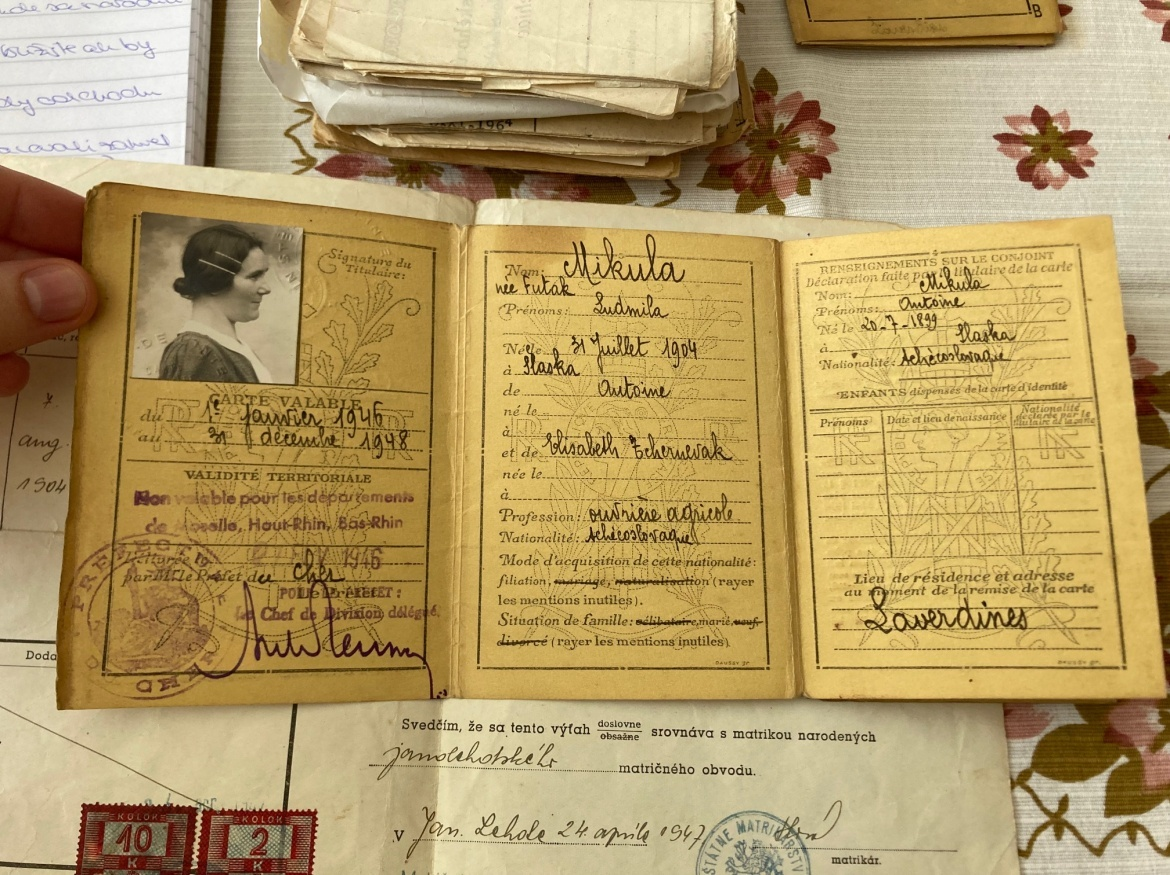 B
1964
Signature du
Titulaire:
CARTE VALABLE
du 1er janvier 1946
au 31 décembre 1948
VALIDITÉ TERRITORIALE
Non valable pour les départements
de Moselle, Haut-Rhin, Bas-Rhin
1946
par M. le Préfet du Cher
POUR LE PRÉFET:
Le Chef de Division délégué,
Nom: Mikula
née Futák
Prénoms: Ludmila
Né le 31 Juillet 1904
à Slaska
de Antoine
né le
à
et de Elisabeth Tchernevak
née le
à
Profession: ouvrière agricole
Nationalité: tchécoslovaque
Mode d'acquisition de cette nationalité:
filiation, mariage, naturalisation (rayer
les mentions inutiles).
Situation de famille: célibataire, marié, veuf,
divorcé (rayer les mentions inutiles)
RENSEIGNEMENTS SUR LE CONJOINT
Déclaration faite par le titulaire de la carte
Nom: Mikula
Prénoms: Antoine
Né le 20-7-1899
à Slaska
Nationalité: tchécoslovaque
ENFANTS dispensés de la carte d'identité
Prénoms Date et lieu de naissance Nationalité
déclarée par le
titulaire de la carte
Lieu de résidence et adresse
au moment de la remise de la carte
Laverdines
7.
aug.
1904
Doda
Svedčím, že sa tento výťah doslovne
obsažne srovnáva s matrikou narodených
janolehotského matričného obvodu.
v Jan. Lehote 24 apríla 1947
matrikár.
KOLOK
10
K
KOLOK
2
K
ŠTÁTNE MATRIČ